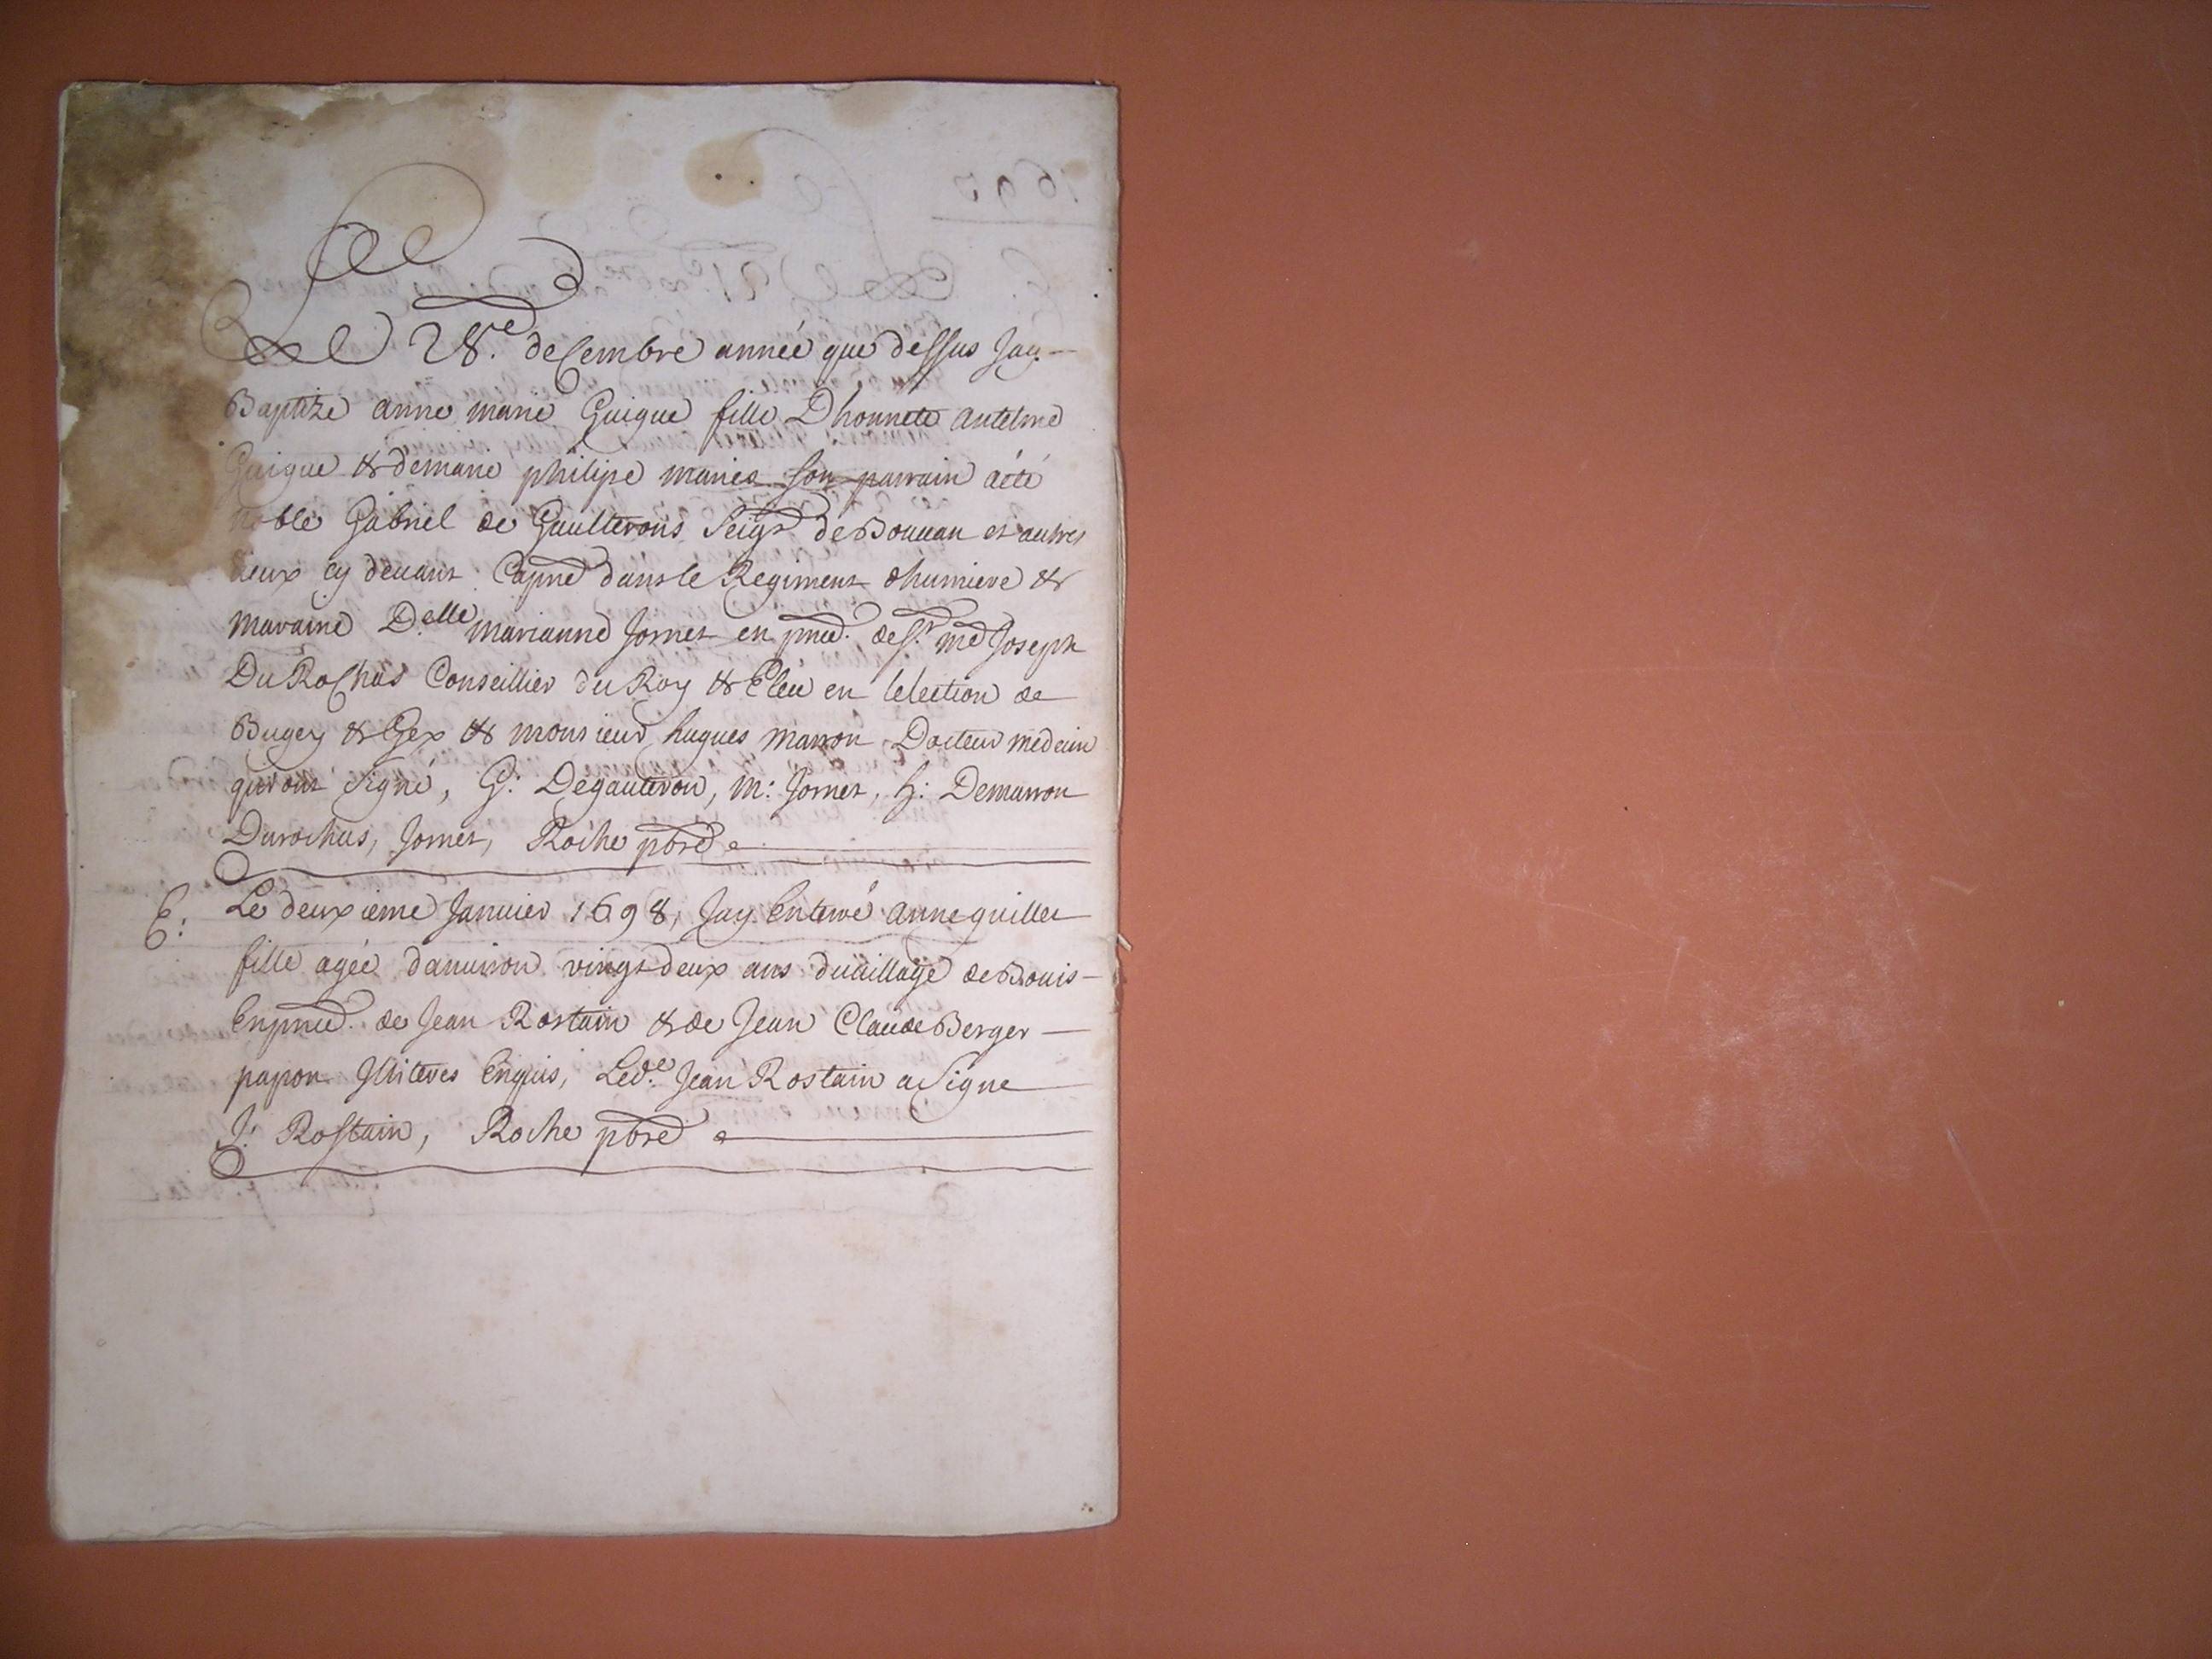 Le 28.e decembre année que dessus Jay
Baptizé anne marie Guigue fille Dhonnete antelme
Guigue & de marie philipe mariés son parrain àété
noble Gabriel de Gaulterons Seigr de Bouuan et autres
lieux cy deuant Capne dans le Regiment dhumiere &
maraine Delle marianne Jornet en pnce. de Sr. me Joseph
Du Rochas Conseillier du Roy & Eleu en lelection de
Bugey & Gex & monsieur hugues marron Docteur medecin
qui ont signé, G: Degauteron, m: Jornet, h: Demarron
Durochas, Jornet, Roche pbre
E: Le deuxieme Januier 1698, Jay Enterré anne guillet
fille agée danuiron vingt deux ans du uillage de Bouis
En pnce. de Jean Rostain & de Jean Claude Berger
papon Jlliteres Enquis, Led.e Jean Rostain a signe
J: Rostain, Roche pbre